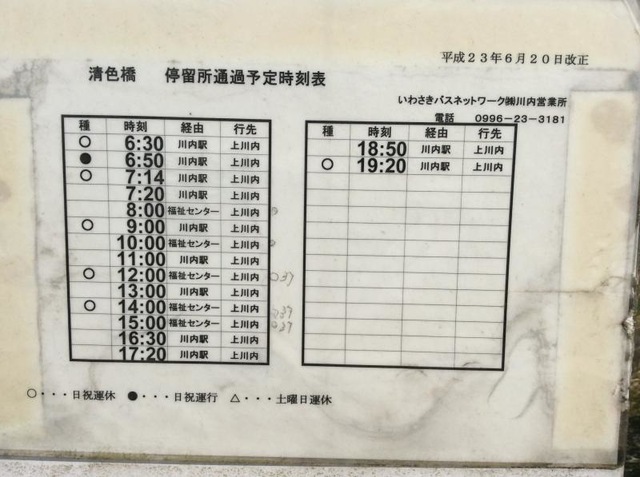 平成23年6月20日改正
清色橋 停留所通過予定時刻表
いわさきバスネットワーク㈱川内営業所
電話 0996-23-3181
種 時刻 経由 行先
○ 6:30 川内駅 上川内
● 6:50 川内駅 上川内
○ 7:14 川内駅 上川内
7:20 川内駅 上川内
8:00 福祉センター 上川内
○ 9:00 川内駅 上川内
10:00 福祉センター 上川内
11:00 川内駅 上川内
○ 12:00 福祉センター 上川内
13:00 川内駅 上川内
○ 14:00 福祉センター 上川内
15:00 福祉センター 上川内
16:30 川内駅 上川内
17:20 川内駅 上川内
種 時刻 経由 行先
18:50 川内駅 上川内
○ 19:20 川内駅 上川内
○・・・日祝運休 ●・・・日祝運行 △・・・土曜日運休